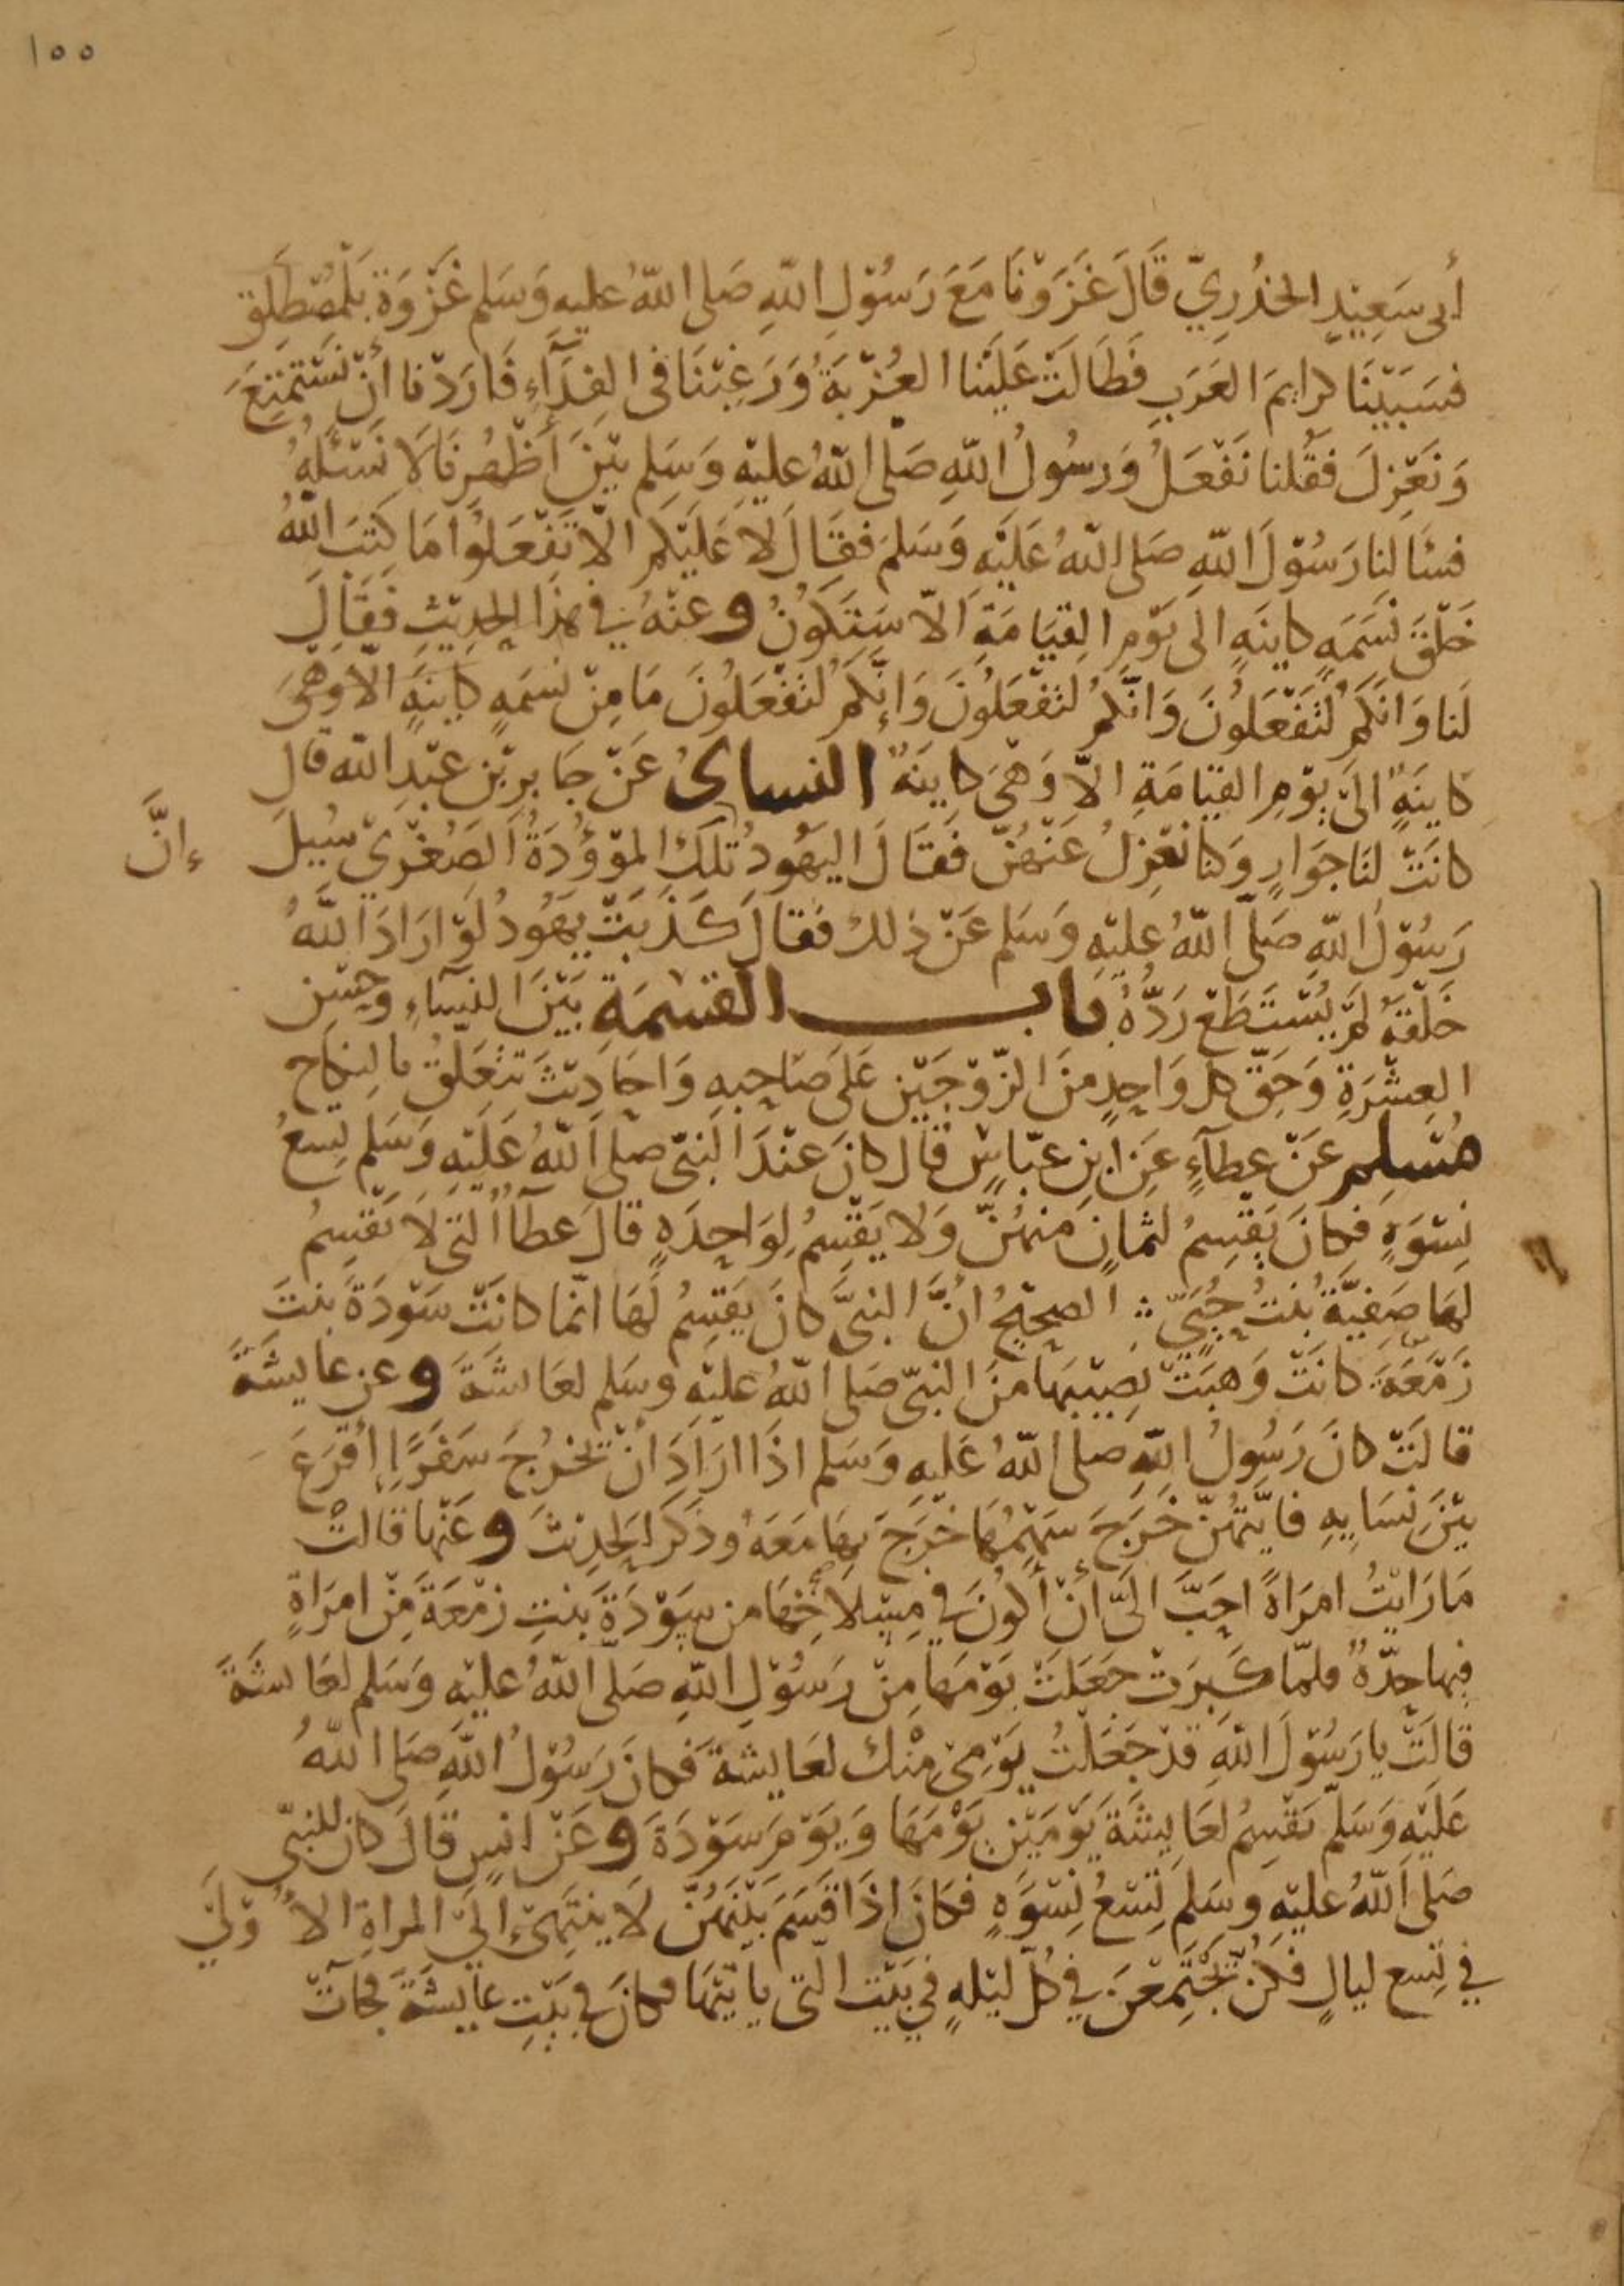 ١٥٥
أبى سَعِيْدٍ الخُدْرِيّ قَالَ غَزَوْنَا مَعَ رَسُوْلِ اللهِ صَلى اللهُ عليه وَسَلم غَزْوَةَ بَلْمُصْطَلِق
فسَبَيْنَا كرايمَ العَرَبِ فَطَالَتْ عَلَيْنا العُزْبَةُ وَرَغِبْنَا فى الفِدَآءِ فَارَدْنا أنْ نَسْتَمْتِعَ
وَنَعْزِلَ فقُلنا نَفْعَلُ وَرسُولُ اللهِ صَلى اللهُ عليْهِ وَسَلم بَيْنَ أظْهُرِنَا لَا نَسْئَلهُ
فسَألنا رَسُوْلَ اللهِ صَلى اللهُ عَلَيْهِ وَسَلمَ فقَالَ لَا عَلَيْكم الّا تَفْعَلُوْا مَا كَتَبَ اللهُ
خَلْقَ نَسَمَهٍ كاينَهٍ الى يَوْمِ القِيَامَةِ الّا سَتَكُونُ وعنْهُ فى هذَا الحَدِيْثِ فَقَالَ
لَنا وَانَكُمْ لتَفْعَلُونَ وَانَّكُمْ لتَفْعَلُونَ وَإنّكُمْ لتَفْعَلُونَ مَا مِنْ نَسمَهٍ كاينَهٍ الّا وهىَ
كَاينَهٍ الىَ يَوْمِ القِيَامَةِ الاّ وَهىَ كاينَهٌ النساىُ عَنْ جَابرِ بْنِ عبْدِ اللهِ قال
كانَتْ لنَا جوَارٍ وَكنا نَعْزِلُ عَنْهُنّ فَقَالَ اليَهُودُ تلكَ المَوْؤُدَةُ الصُغْرَى سُيلَ
ءِانَّ
رَسُوْلُ اللهِ صَلّى اللهُ عليْهِ وَسَلم عَنْ ذلكَ فَقالَ كَذَبَتْ يَهُودُ لَوْ ارَادَ اللهُ
خَلْقَهُ لمْ يُسْتَطَعْ رَدُّهُ باب القسْمَةِ بَيْنَ النسَآءِ وحسْن
العِشْرَةِ وَحَقّ كلّ وَاحِدٍ منَ الزّوْجَيْنِ عَلَى صَاحبِهِ وَاحَادِيْثَ تتَعَلقُ بالنِكاحِ
مُسْلِم عَنْ عطَآءٍ عَنِ ابنِ عبّاسٍ قال كانَ عنْدَ النَبىّ صلى اللهُ عَلَيْهِ وَسَلم تِسعُ
نسْوَةٍ فكانَ يَقْسِمُ لثمانٍ منهُنّ وَلا يَقْسِمُ لِوَاحِدَهٍ قالَ عطآا التى لَا يَقْسِمُ
لهَا صَفِيَّةُ بُنتُ حُيَىّ الصحِيْحُ انَّ النبىَّ كانَ يَقسِمُ لَهَا انّما كانَتْ سَوْدَةَ بنتَ
زَمْعَةَ كانَتْ وَهبَتْ نَصِيْبهَا منَ النبىّ صَلى اللهُ عليْهِ وسَلم لعَائشَةَ وعن عايشَةَ
قالَتْ كانَ رَسُولُ اللهِ صلى اللهُ عَليهِ وَسَلم اذَا ارَادَ انْ يخْرُجَ سَفَرًا أقرَعَ
بَيْنَ نسَايهِ فايَّتهُنّ خَرَجَ سَهْمُهَا خَرَجَ بهَا مَعَهُ وذَكرَ الحَديْثَ وعَنْها قالتْ
مَا رَايْتُ امرَاةً احَبَّ الىَّ انْ أكُونَ فى مِسْلَاخهَا من سَوْدَةَ بنتِ زمْعَةَ مِنْ امرَاةٍ
فيها حِدّةٌ فلمّا كَبِرَتْ جَعَلَتْ يَوْمَها مِنْ رَسُوْلِ اللهِ صَلى اللهُ عليْهِ وَسَلم لعَائشَةَ
قالَتْ يا رَسُوْلَ اللهِ قدْ جَعَلْتُ يَوْمِىْ مِنْكَ لعَايشةَ فكانَ رَسُوْلُ اللهِ صَلى اللهُ
عَلَيْهِ وَسَلّم يَقْسِمُ لعَايشَةَ يَوْمَيْنِ يَوْمَهَا وَيَوْمَ سَوْدَةَ وعَنْ انسٍ قالَ كانَ للنبىّ
صَلى اللهُ عليْهِ وسَلمَ تِسْعُ نِسْوَهٍ فكانَ اذَا قسَمَ بَيْنَهُنّ لَا يَنتَهىْ الىَ المراةِ الأُوْلَى
فى تِسعِ ليالٍ فكُنَّ يَجْتَمِعْنَ فى كُلّ ليْلهٍ فى بَيْتِ الّتى يا تيْهَا فكانَ فى بَيْتِ عايشَةَ فجآتْ